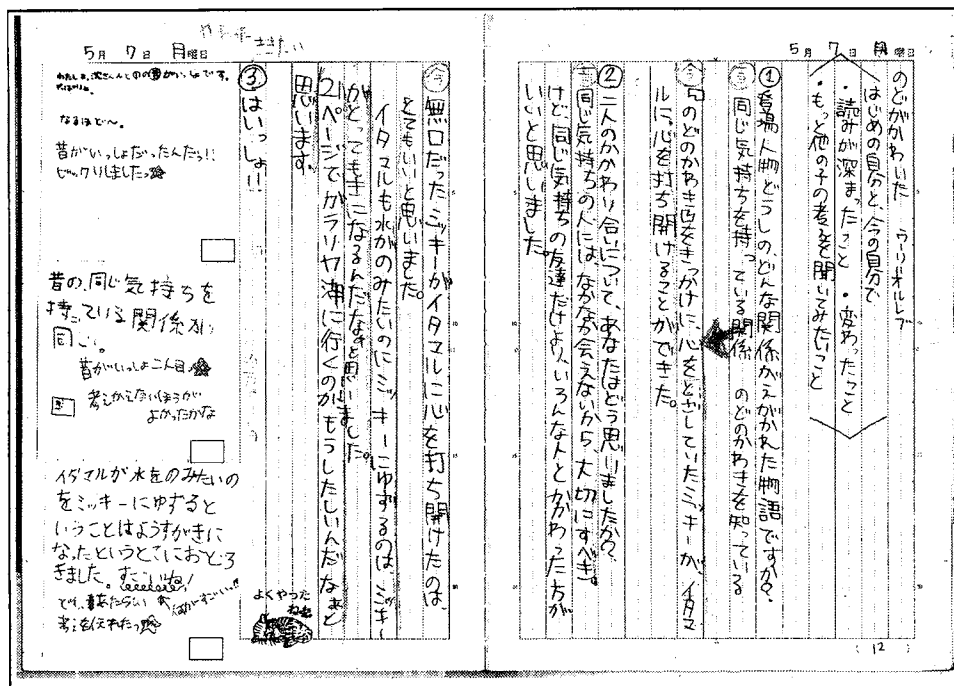 5月 7日 月曜日
のどがかわいた ウーリーオルレブ
はじめの自分と、今の自分で
・読みが深まったこと ・変わったこと
・もっと他の子の考えを聞いてみたいこと
① 登場人物どうしの、どんな関係がえがかれた物語ですか?
同じ気持ちを持っている関係 のどのかわきを知っている
今 兄のどのかわき区をきっかけに、心をとざしていたミッキーが、イタマ
ルに、心を打ち開けることができた。
② 二人のかかわり合いについて、あなたはどう思いましたか?
同じ気持ちの人には、なかなか会えないから、大切にすべき。
けど、同じ気持ちの友達だけより、いろんな人とかかわった方が
いいと思いました。
(12)
5月 7日 月曜日
今 無口だったミッキーがイタマルに心を打ち開けたのは、
とてもいいと思いました。
イタマルも水がのみたいのにミッキーにゆずるのは、ミッキー
がとってもきになるんだなぁと思いました。
21ページでガラリヤ湖に行くのがもうしたしいんだなぁと
思います。
③ はいっしょ!!
よくやった
ねぇ
なるほど〜。
昔がいっしょだったんだっ!!
ビックリしましたっ
昔の、同じ気持ちを
持っている関係が
同じ。
昔がいっしょ二人目
考えかえないほうが
よかったかな
イタマルが水をのみたいの
をミッキーにゆずると
いうことはようすがきに
なったというとこにおどろ
きました。すごいね!